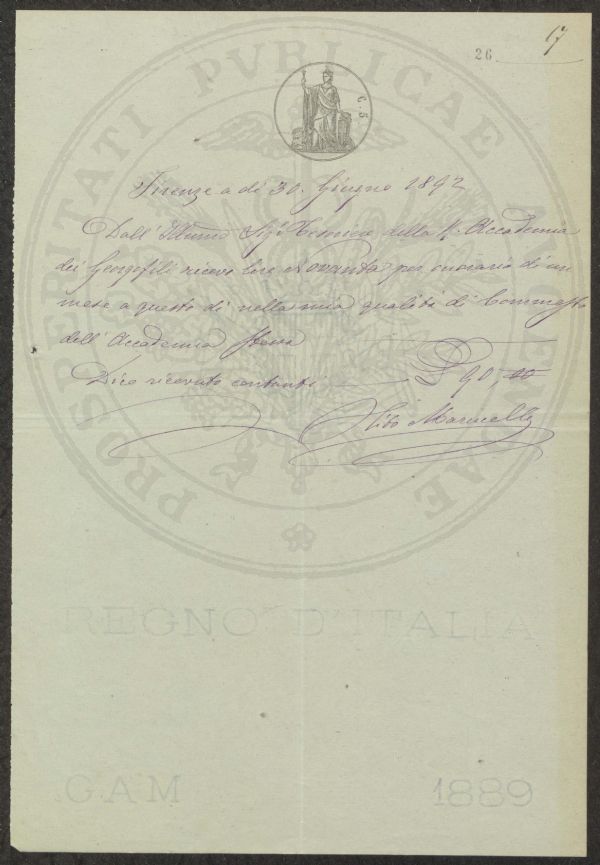 17
26
PROSPERITATI PUBLICAE AUGENDAE
C. 5
Firenze a dì 30. Giugno 1892
Dall' Illmo Sigr Tesoriere della R. Accademia
dei Georgofili ricevo lire Novanta per onorario di un
mese a questo dì nella mia qualità di Commesso
dell' Accademia stessa
Dico ricevute contanti L 90,00
Vito Marinelli
REGNO D'ITALIA
G.A M 1889